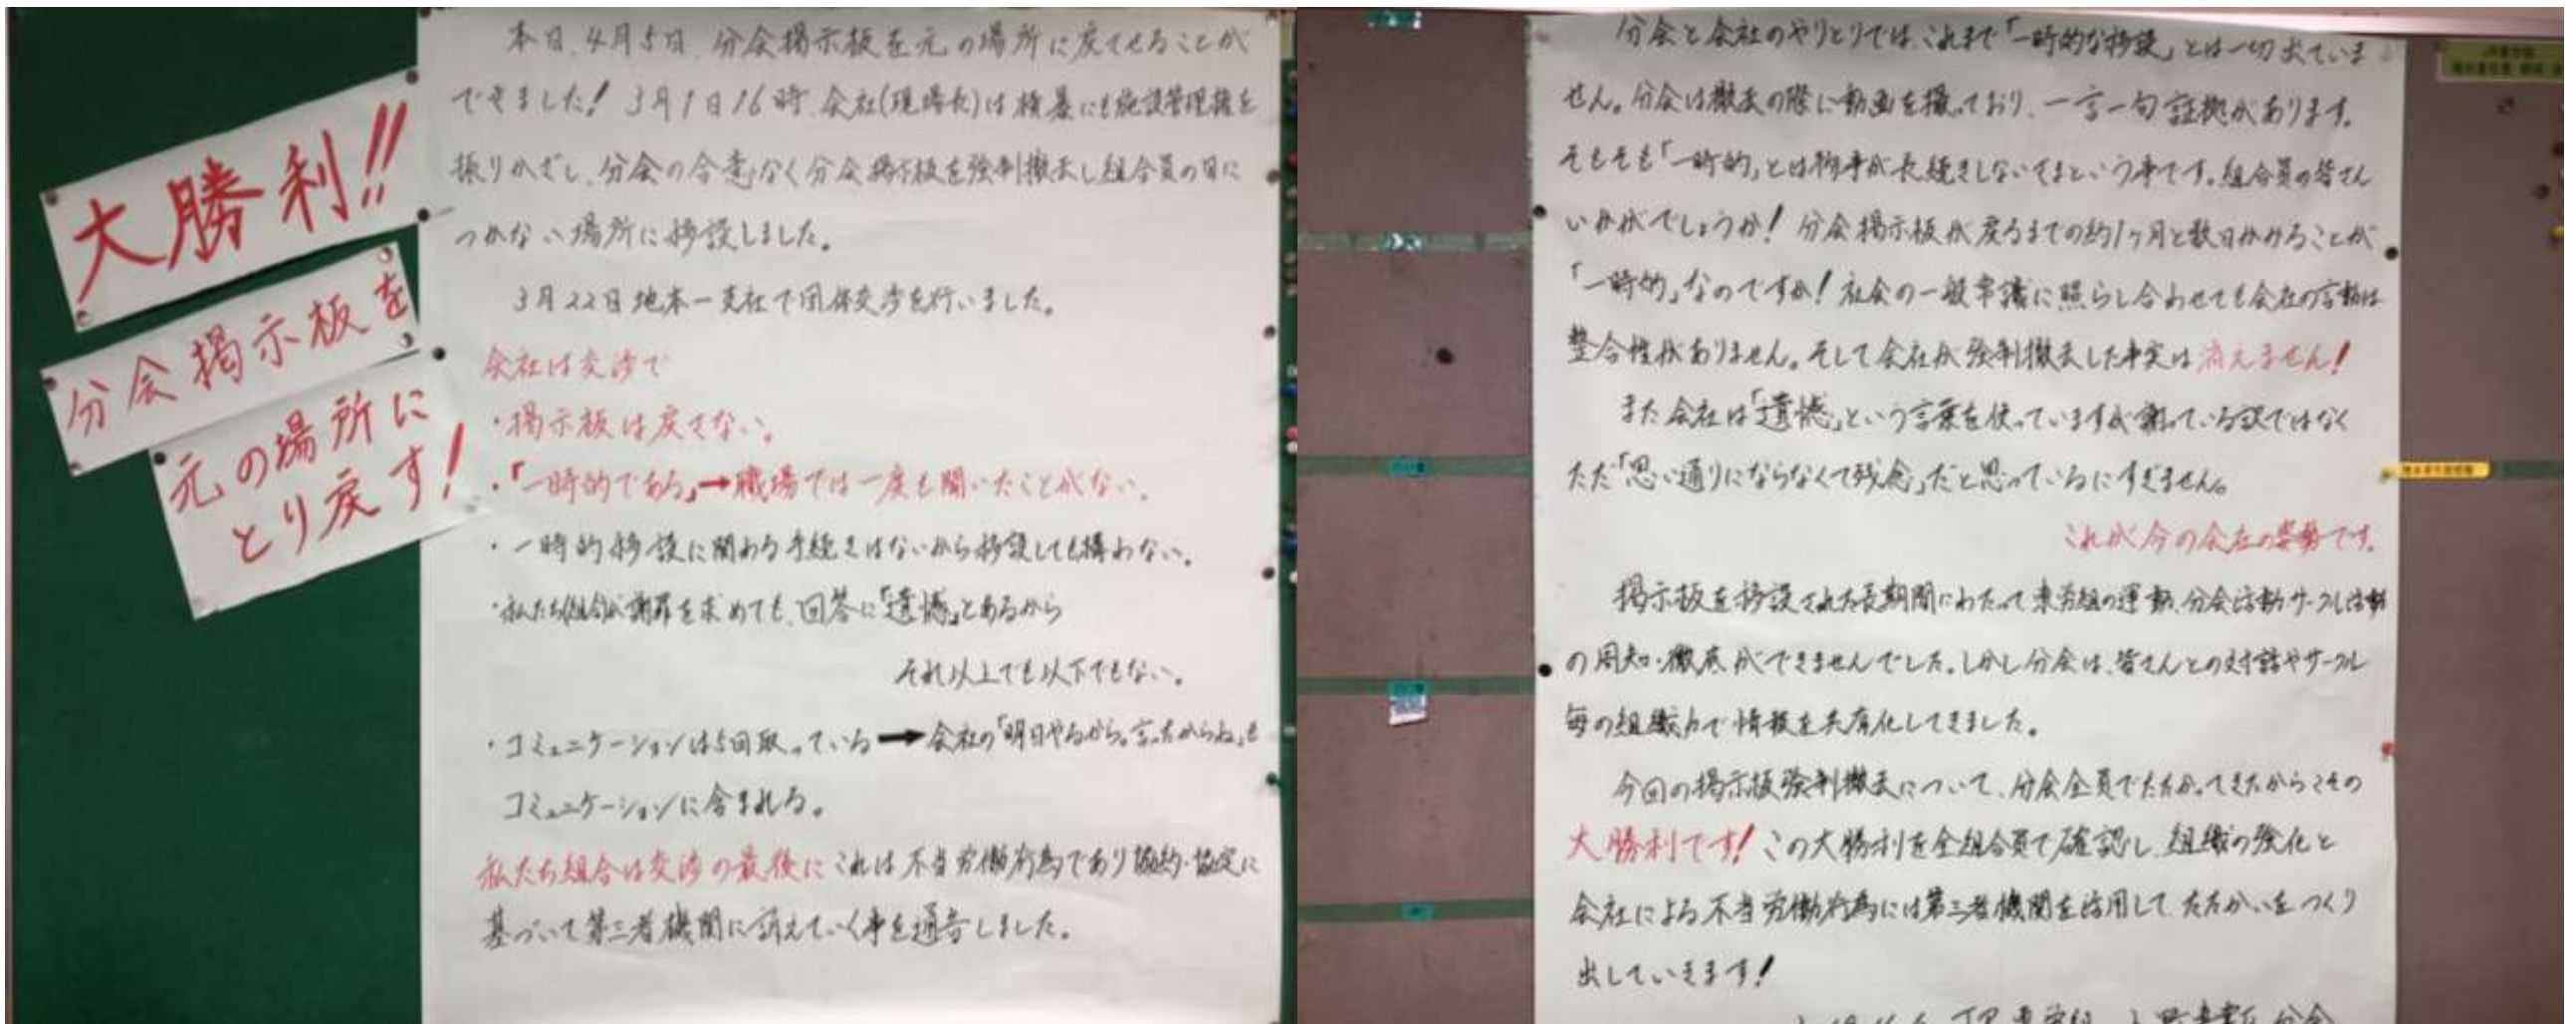 大勝利!!
分会掲示板を
元の場所に
とり戻す!
本日、4月5日、分会掲示板を元の場所に戻させることが
できました! 3月1日16時、会社(現場長)は横暴にも施設管理権を
振りかざし、分会の合意なく分会掲示板を強制撤去し組合員の目に
つかない場所に移設しました。
3月22日地本―支社で団体交渉を行いました。
会社は交渉で
・掲示板は戻さない。
・「一時的である」→職場では一度も聞いたことがない。
・一時的移設に関わる手続きはないから移設しても構わない。
・私たち組合が謝罪を求めても、回答に「遺憾」とあるから
それ以上でも以下でもない。
・コミュニケーションは5回取っている→会社の「明日やるから。言ったからね」も
コミュニケーションに含まれる。
私たち組合は交渉の最後にこれは不当労働行為であり協約・協定に
基づいて第三者機関に訴えていく事を通告しました。
分会と会社のやりとりでは、これまで「一時的な移設」とは一切出ていま
せん。分会は撤去の際に動画を撮っており、一言一句証拠があります。
そもそも「一時的」とは物事が長続きしないさまという事です。組合員の皆さん
いかがでしょうか! 分会掲示板が戻るまでの約1ヶ月と数日かかることが
「一時的」なのですか! 社会の一般常識に照らし合わせても会社の言動は
整合性がありません。そして会社が強制撤去した事実は消えません!
また会社は「遺憾」という言葉を使っていますが謝っている訳ではなく
ただ「思い通りにならなくて残念」だと思っているにすぎません。
これが今の会社の姿勢です。
掲示板を移設された長期間にわたって東労組の運動、分会活動サークル活動
の周知・徹底ができませんでした。しかし分会は、皆さんとの対話やサークル
毎の組織力で情報を共有化してきました。
今回の掲示板強制撤去について、分会全員でたたかってきたからこその
大勝利です! この大勝利を全組合員で確認し、組織の強化と
会社による不当労働行為には第三者機関を活用して、たたかいをつくり
出していきます!
JR東労組
分会